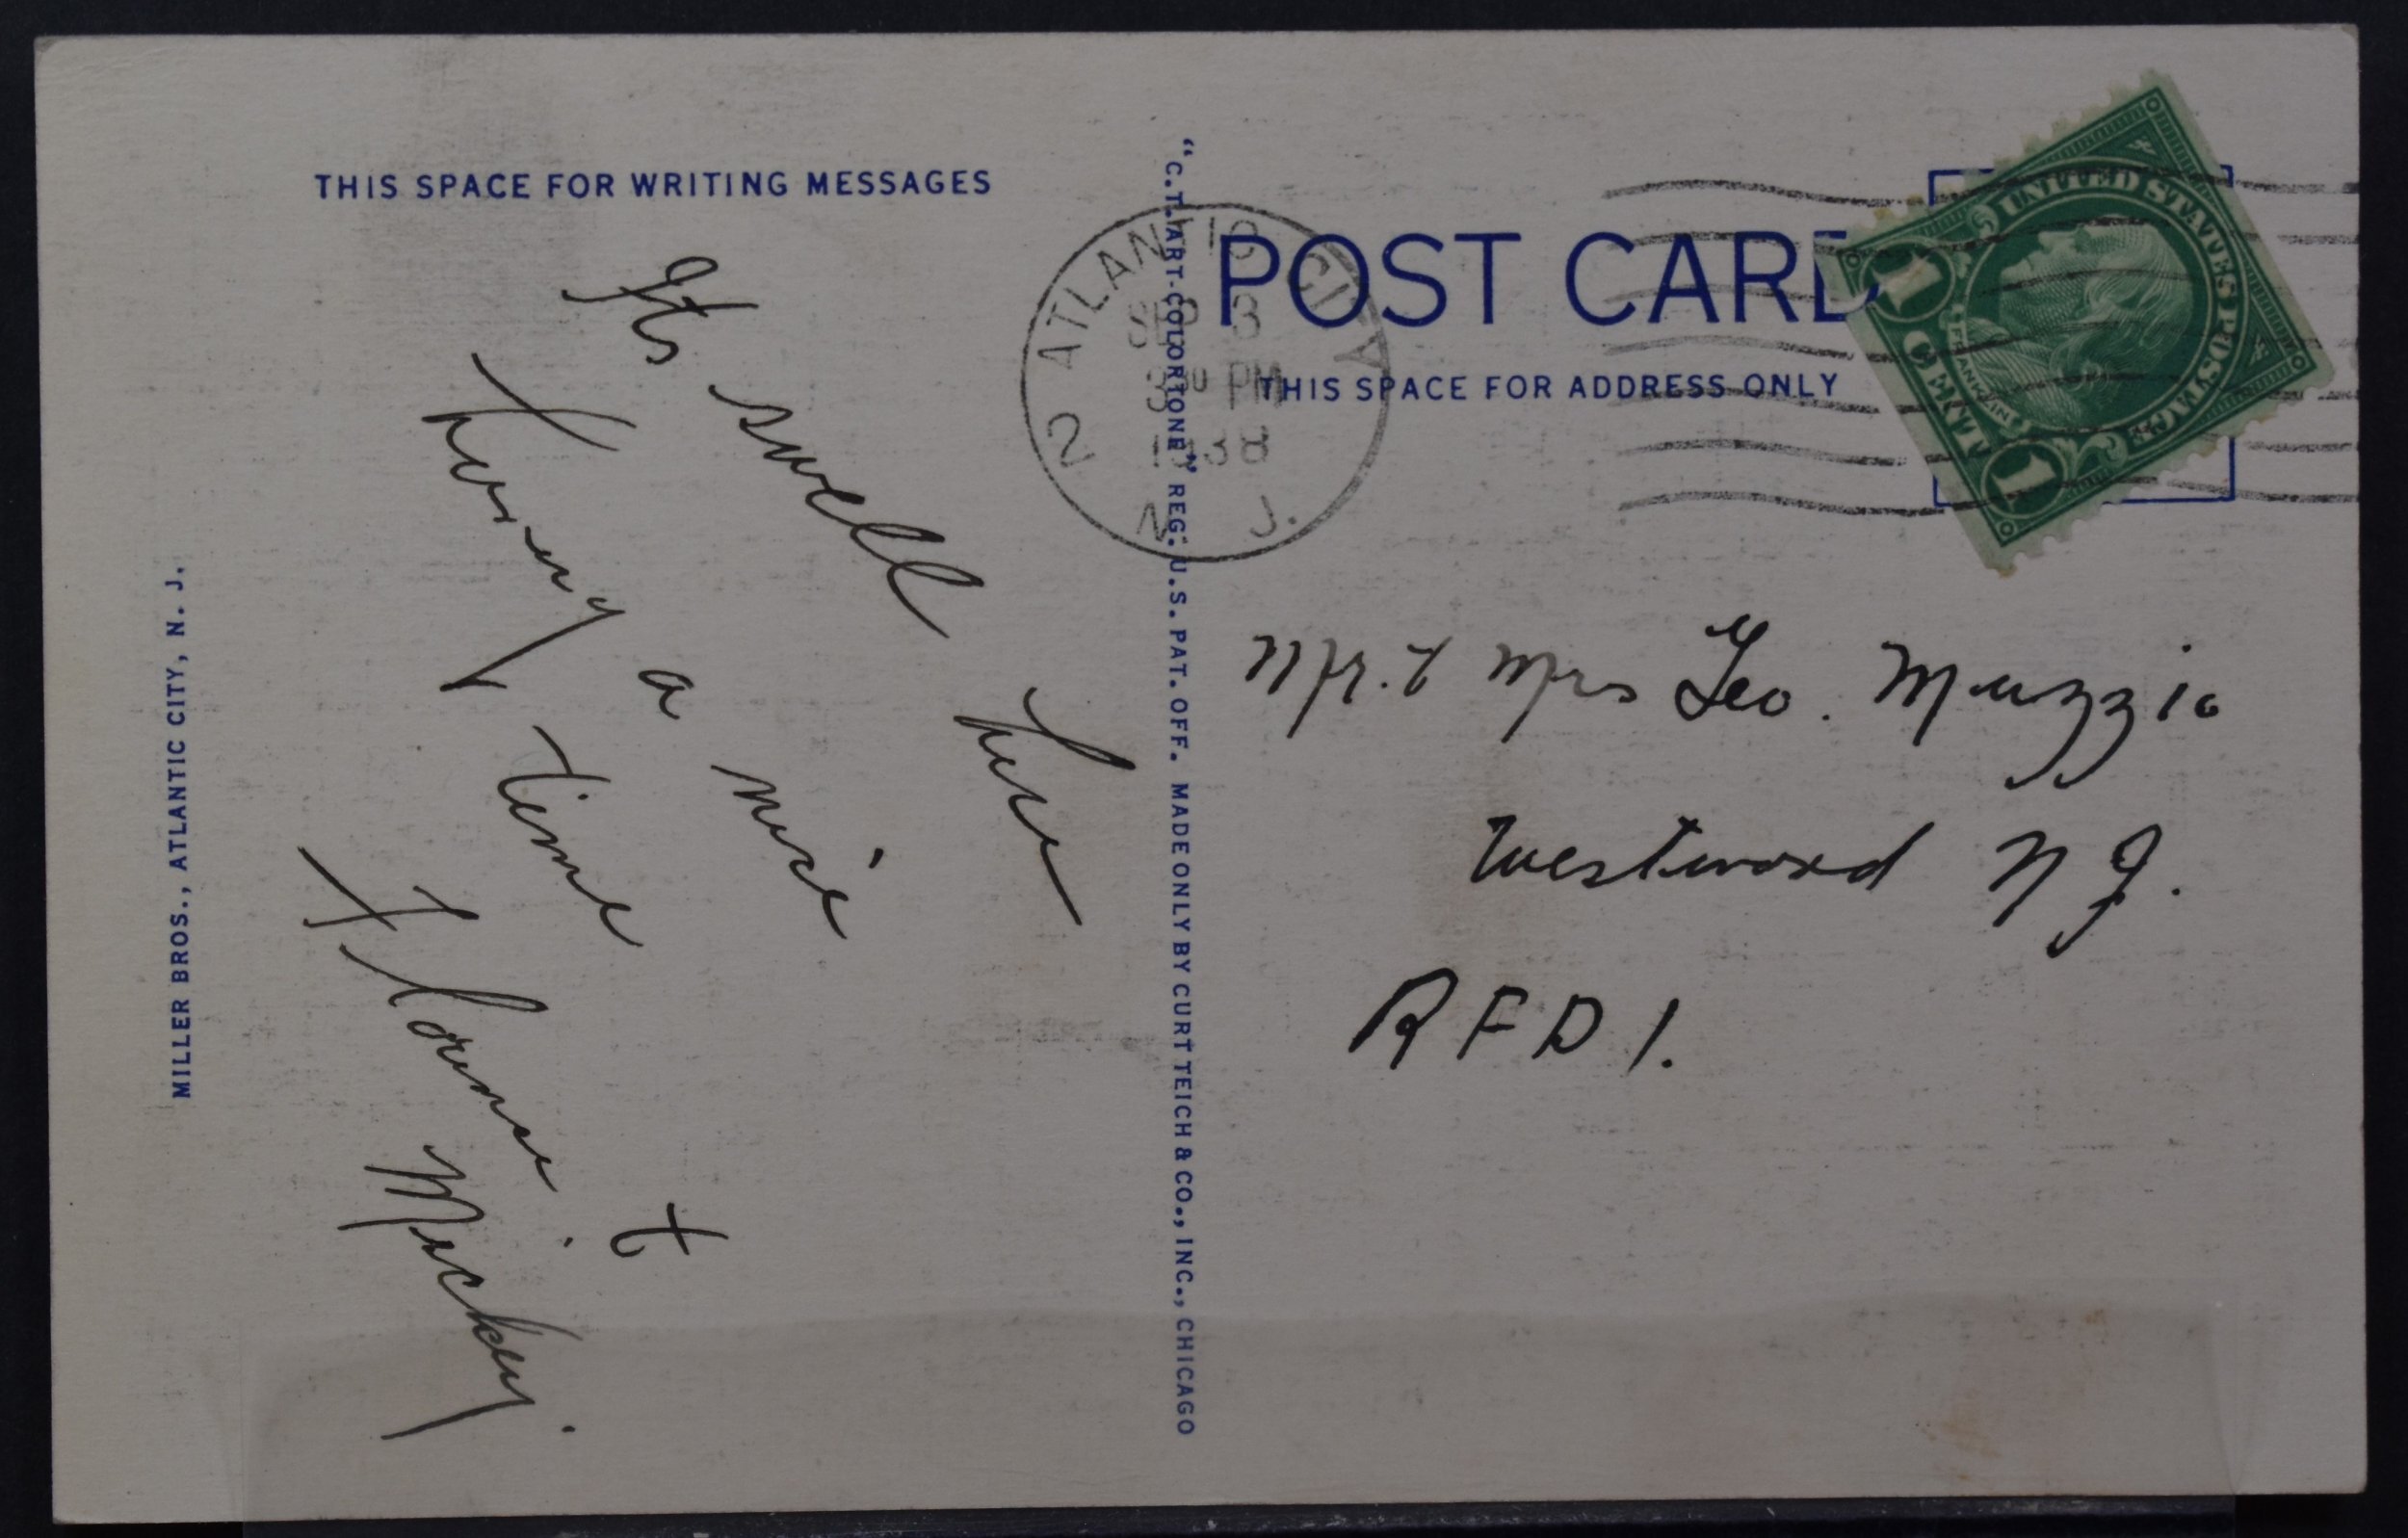 THIS SPACE FOR WRITING MESSAGES
Its swell here
having a nice
time
Florence &
Mickey.
MILLER BROS., ATLANTIC CITY, N. J.
"C.T. ART-COLORTONE" REG. U.S. PAT. OFF. MADE ONLY BY CURT TEICH & CO., INC., CHICAGO
POST CARD
THIS SPACE FOR ADDRESS ONLY
2 ATLANTIC CITY
SEP 3
3 30 PM
1938
N. J.
UNITED STATES POSTAGE
FRANKLIN
1 CENT 1
Mr. & Mrs Geo. Muzzio
Westwood N J.
R F D 1.